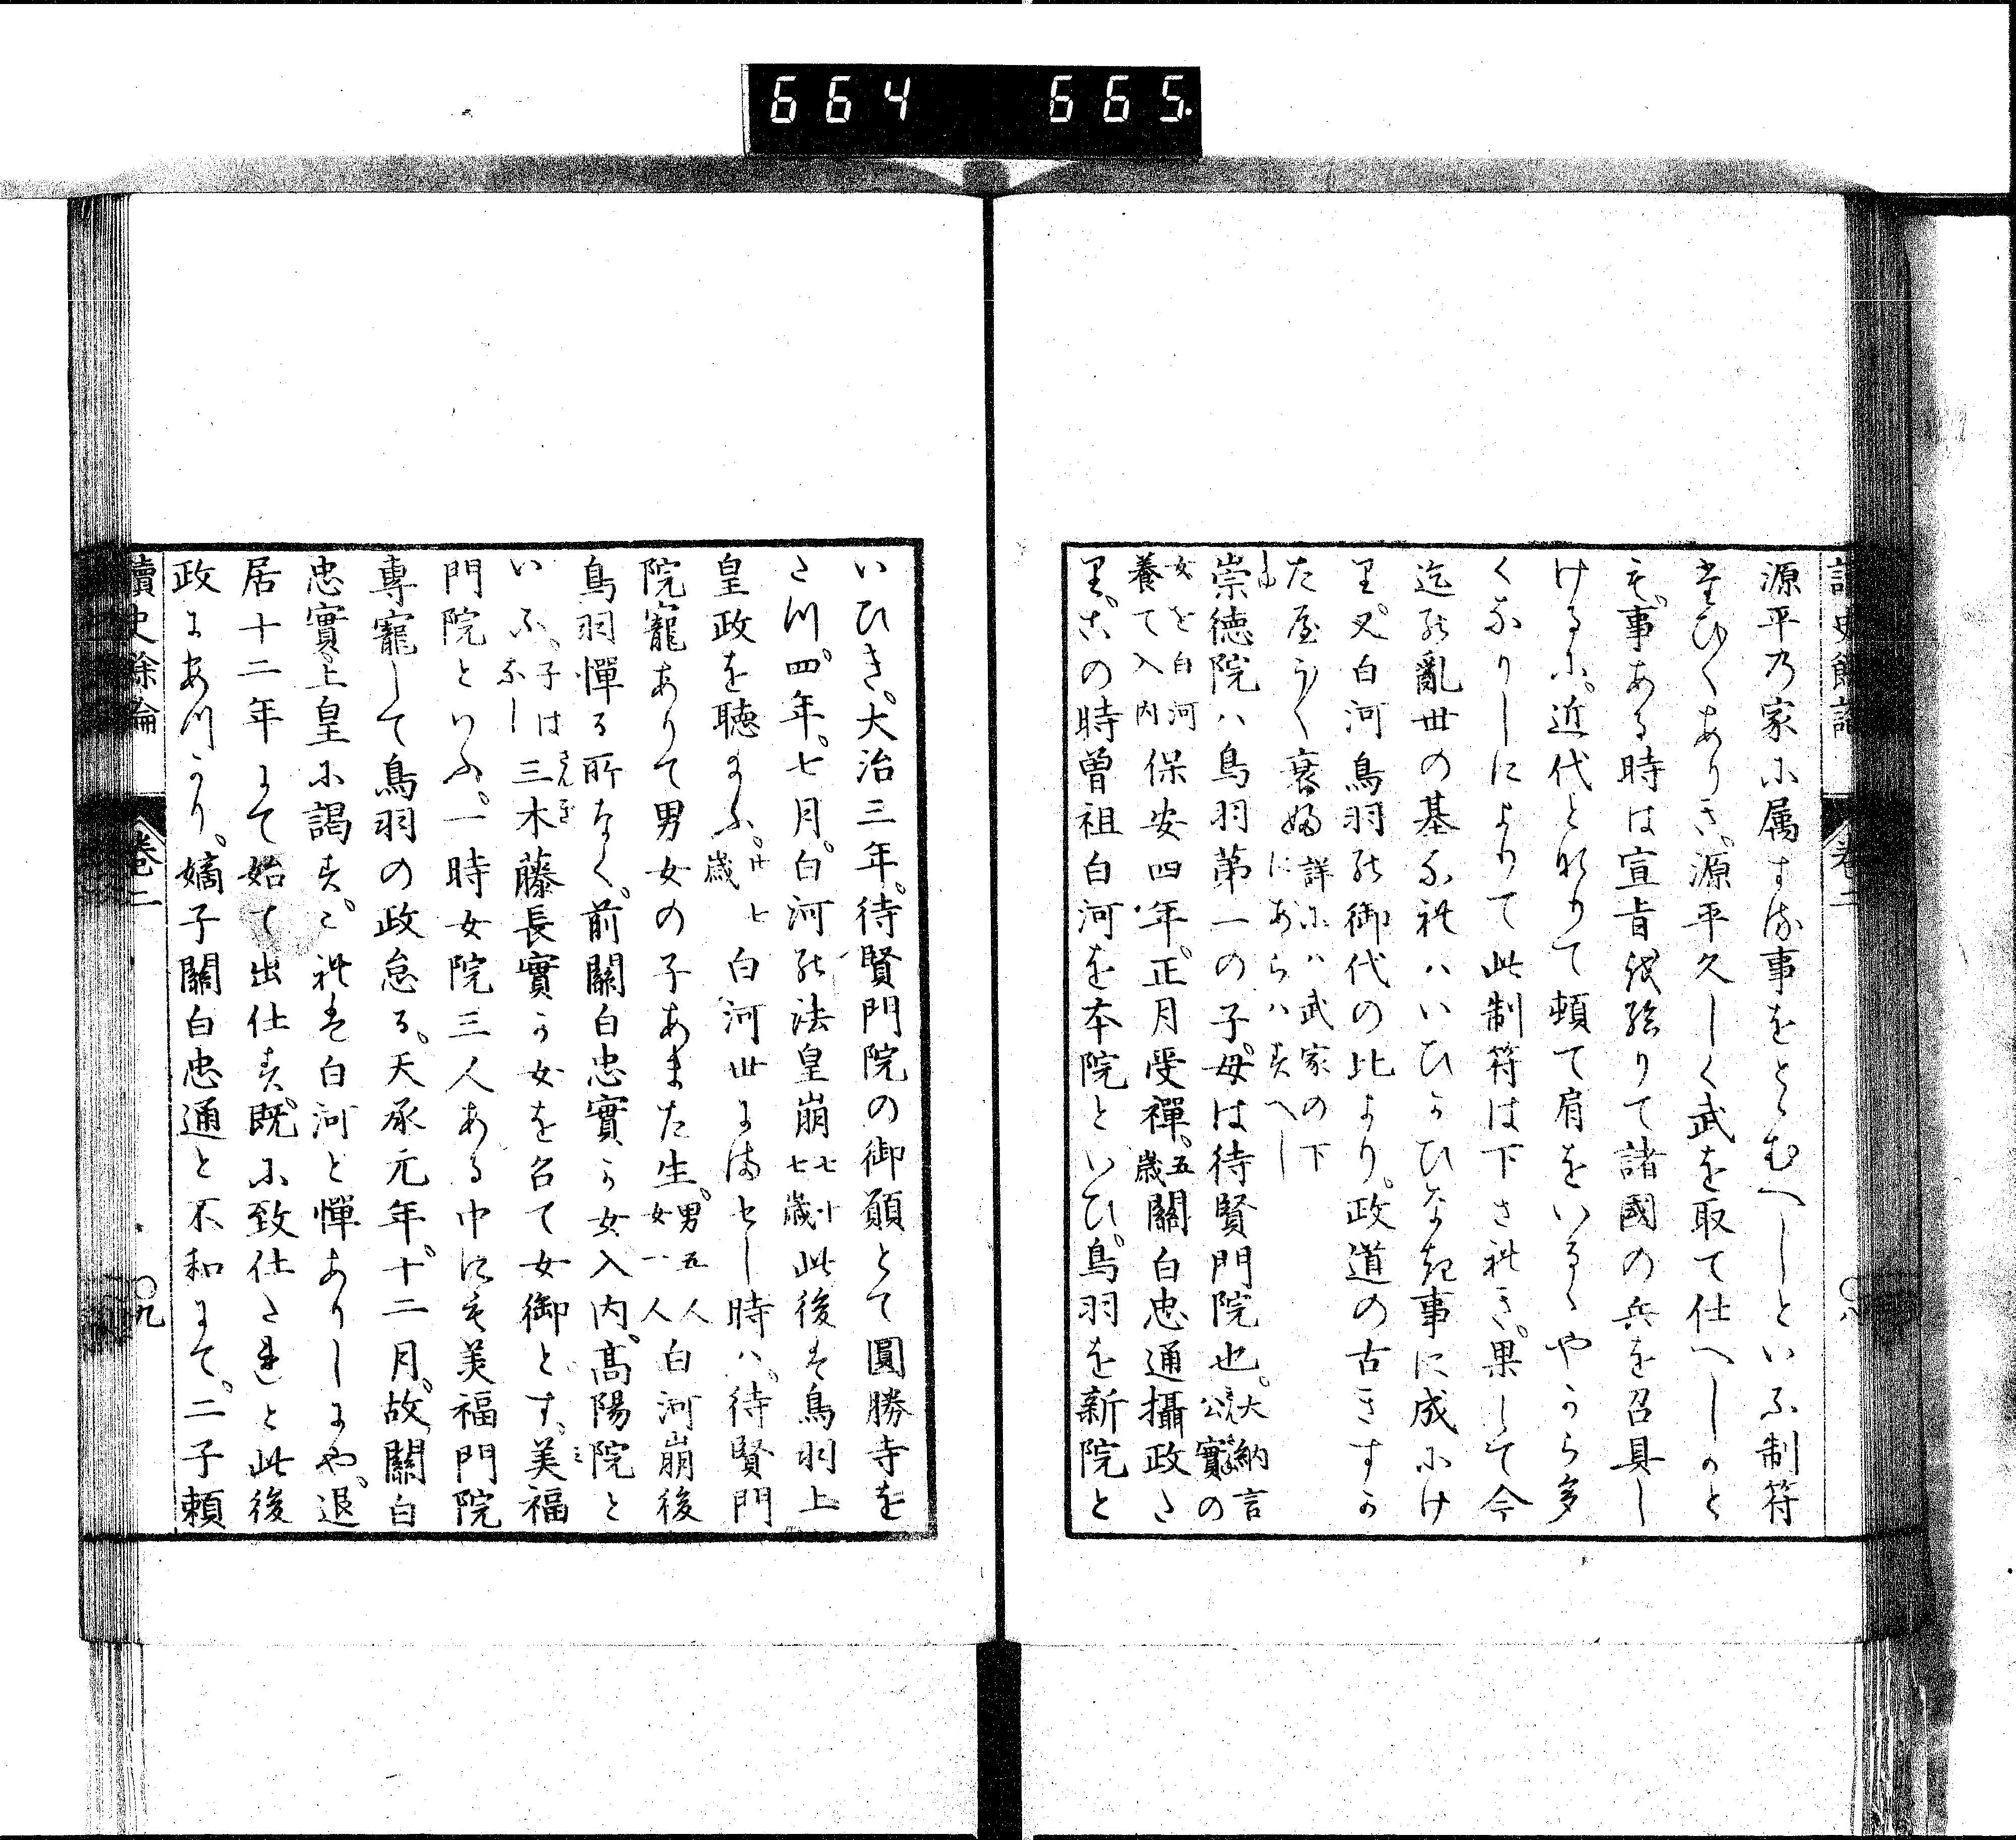 664 665.
源平乃家に属する事をとゝむへしといふ制符
たひ〳〵ありき。源平久しく武を取て仕へしかと
も。事ある時は宣旨を給りて諸國の兵を召具し
けるに。近代となりて頼て肩をいるゝやから多
くなりしによりて此制符は下されき。果して今
迄の亂世の基なれはいひかひなき事に成にけ
り又白河鳥羽の御代の比より。政道の古きすか
たやうく衰ふ詳には武家の下にあらはすへし
崇徳院ハ鳥羽第一の子。母は待賢門院也。大納言公實の
女を白河養て入内保安四年。正月受禪。五歳關白忠通攝政た
り。此の時曽祖白河を本院といひ。鳥羽を新院と
讀史餘論 卷二 〇八
いひき。大治三年。待賢門院の御願とて圓勝寺を
たつ。四年。七月。白河の法皇崩七十七歳此後は鳥羽上
皇政を聴まふ。廿七歳白河世にませし時ハ。待賢門
院寵ありて男女の子あまた生。男五人女一人白河崩後
鳥羽憚る所なく。前關白忠實か女入内。高陽院と
いふ。子はなし三木藤長實か女を召て女御とす。美福
門院といふ。一時女院三人ある中にも美福門院
專寵して鳥羽の政怠る。天承元年。十二月。故關白
忠實。上皇に謁す。これは白河と憚ありしにや。退
居十二年にて始て出仕す。既に致仕されと此後
政にあつかり。嫡子關白忠通と不和にて。二子頼
讀史餘論 卷二 〇九